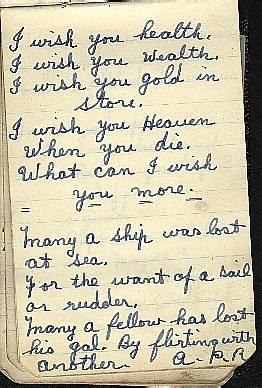 I wish you health.
I wish you wealth.
I wish you gold in
store.
I wish you Heaven
When you die.
What can I wish
you more.
=
Many a ship was lost
at sea.
For the want of a sail
or rudder.
Many a fellow has lost
his gal. By flirting with
another. A. P. R